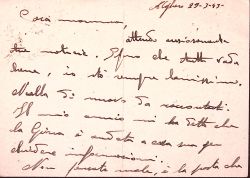 29-3-43-
Cara mamma,
attendo ansiosamente
tue notizie. Spero che tutto vada
bene, io sto sempre benissimo.
Nulla di nuovo da raccontarti.
Il mio amico mi ha detto che
la Gina è andata a casa sua per
chiedere informazioni.
Non pensate male, è la posta che